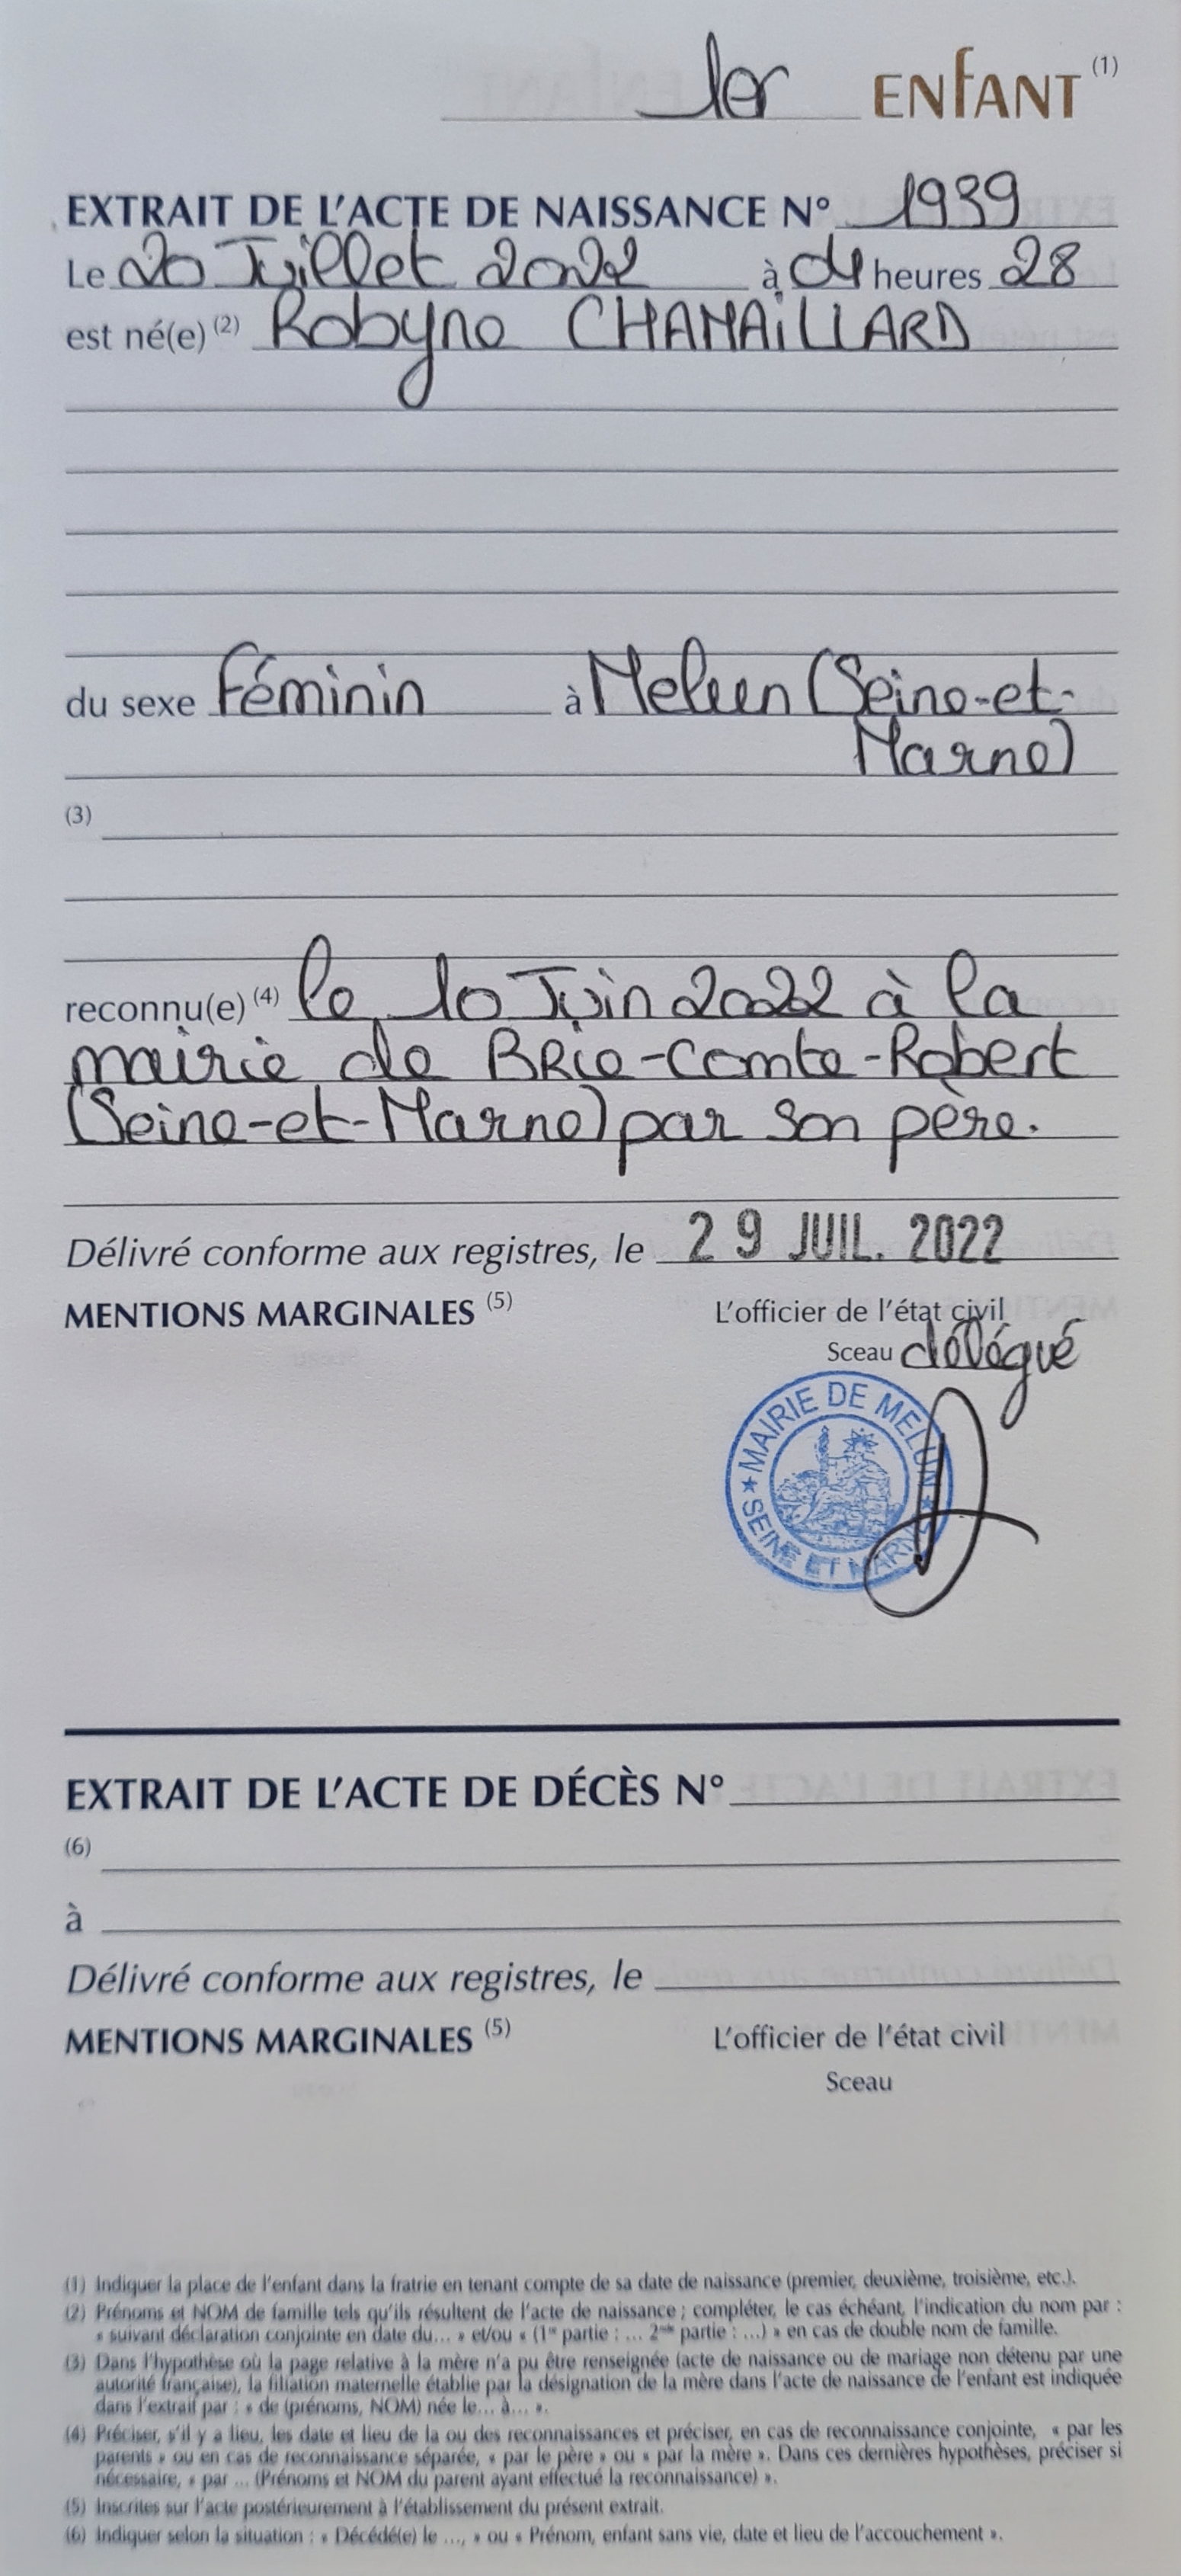 1er ENFANT (1)
EXTRAIT DE L'ACTE DE NAISSANCE N° 1939
Le 20 Juillet 2022 à 04 heures 28
est né(e) (2) Robyne CHAMAILLARD
du sexe Féminin à Melun (Seine-et-
Marne)
(3)
reconnu(e) (4) le 10 Juin 2022 à la
mairie de BRie-Comte-Robert
(Seine-et-Marne) par son père.
Délivré conforme aux registres, le 29 JUIL. 2022
MENTIONS MARGINALES (5) L'officier de l'état civil
Sceau délégué
MAIRIE DE MELUN
SEINE ET MARNE
EXTRAIT DE L'ACTE DE DÉCÈS N°
(6)
à
Délivré conforme aux registres, le
MENTIONS MARGINALES (5) L'officier de l'état civil
Sceau
(1) Indiquer la place de l'enfant dans la fratrie en tenant compte de sa date de naissance (premier, deuxième, troisième, etc.).
(2) Prénoms et NOM de famille tels qu'ils résultent de l'acte de naissance ; compléter, le cas échéant, l'indication du nom par :
« suivant déclaration conjointe en date du... » et/ou « (1re partie : ... 2nde partie : ...) » en cas de double nom de famille.
(3) Dans l'hypothèse où la page relative à la mère n'a pu être renseignée (acte de naissance ou de mariage non détenu par une
autorité française), la filiation maternelle établie par la désignation de la mère dans l'acte de naissance de l'enfant est indiquée
dans l'extrait par : « de (prénoms, NOM) née le... à... ».
(4) Préciser, s'il y a lieu, les date et lieu de la ou des reconnaissances et préciser, en cas de reconnaissance conjointe, « par les
parents » ou en cas de reconnaissance séparée, « par le père » ou « par la mère ». Dans ces dernières hypothèses, préciser si
nécessaire, « par ... (Prénoms et NOM du parent ayant effectué la reconnaissance) ».
(5) Inscrites sur l'acte postérieurement à l'établissement du présent extrait.
(6) Indiquer selon la situation : « Décédé(e) le ..., » ou « Prénom, enfant sans vie, date et lieu de l'accouchement ».